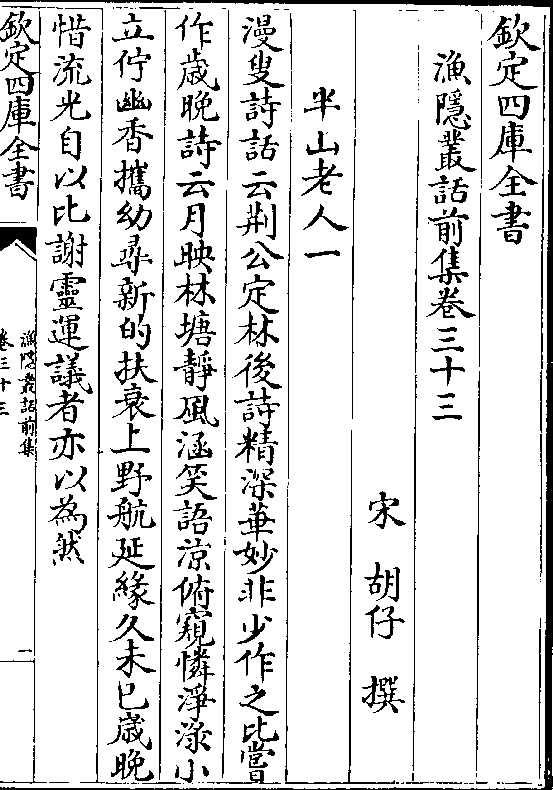 欽定四庫全書
漁隱叢話前集卷三十三
宋 胡仔 撰
半山老人一
漫叟詩話云荆公定林後詩精深華妙非少作之比嘗
作歲晚詩云月映林塘靜風涵笑語涼俯窺憐淨渌小
立佇幽香攜幼尋新的扶衰上野航延緣久未已歲晚
惜流光自以比謝靈運議者亦以為然
欽定四庫全書
漁隱叢話前集
卷三十三
一